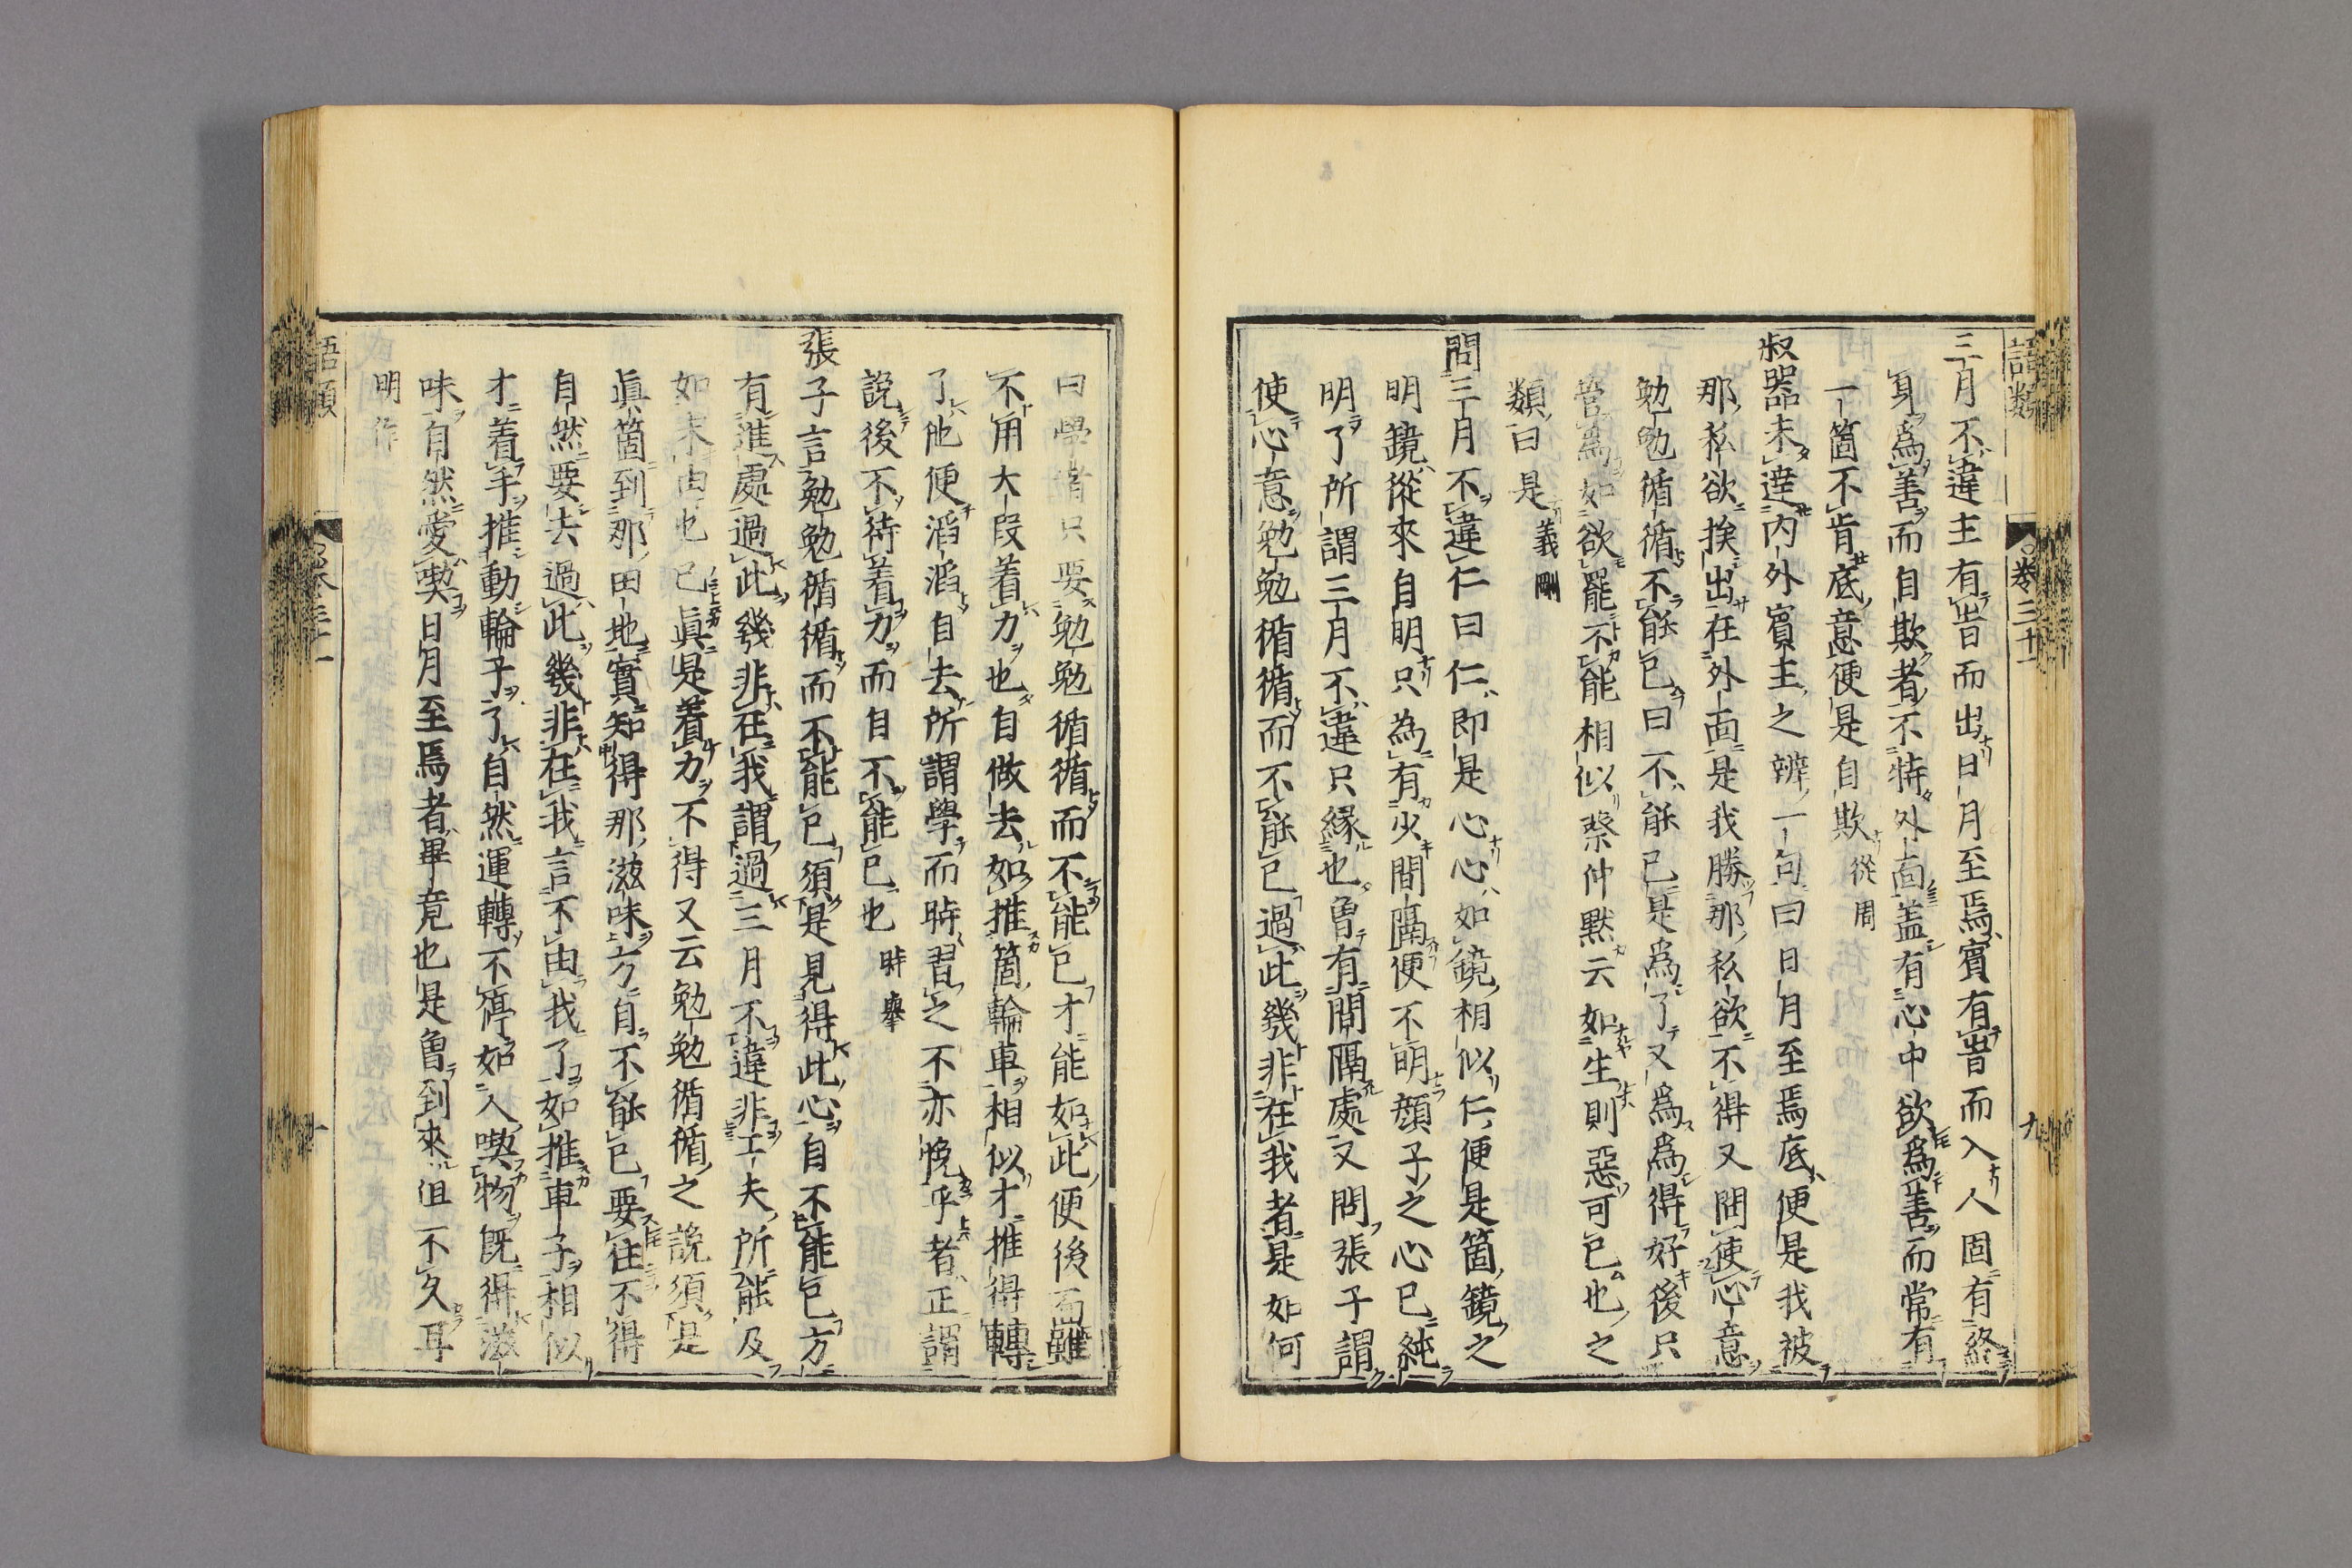 語類
卷三十一
九
三月不違主有時而出日月至焉賓有時而入人固有終
身爲善而自欺者不特外面盖有心中欲爲善而常有
一箇不肯底意便是自欺從周
叔器未達内外賓主之辨一句曰日月至焉底便是我被
那私欲挨出在外面是我勝那私欲不得又問使心意
勉勉循循不能已曰不能已是爲了又爲爲得好後只
管爲如欲罷不能相似蔡仲默云如生則惡可已也之
類曰是義剛
問三月不違仁曰仁即是心心如鏡相似仁便是箇鏡之
明鏡從來自明只為有少間隔便不明顔子之心已純
明了所謂三月不違只縁也曽有間隔處又問張子謂
使心意勉勉循循而不能已過此幾非在我者是如何
曰學者只要勉勉循循而不能已才能如此便後面雖
不用大段着力也自做去如推箇輪車相似才推得轉
了他便滔滔自去所謂學而時習之不亦悅乎者正謂
說後不待着力而自不能已也時舉
張子言勉勉循循而不能已須是見得此心自不能已方
有進處過此幾非在我謂過三月不違非工夫所能及
如未由也已眞是着力不得又云勉勉循循之說須是
眞箇到那田地實知得那滋味方自不能已要住不得
自然要去過此幾非在我言不由我了如推車子相似
才着手推動輪子了自然運轉不停如人喫物既得滋
味自然愛喫日月至焉者畢竟也是曽到來但不久耳
明作
語類
卷三十一
十